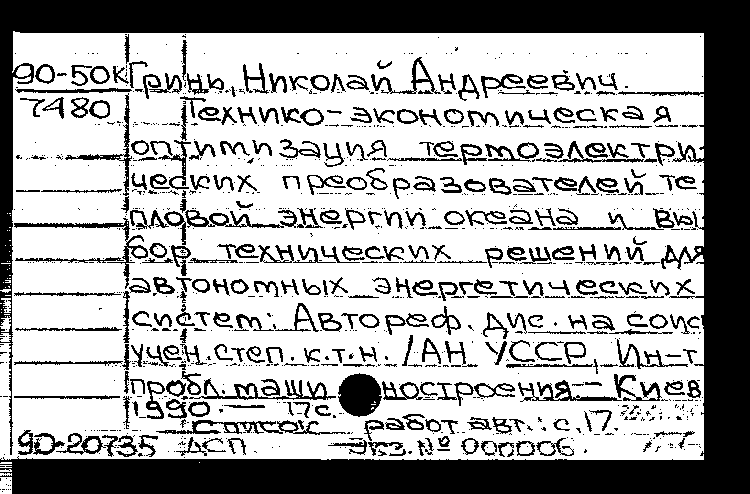 90-50к Гринь, Николай Андреевич.
7480 Технико-экономическая
оптимизация термоэлектри-
ческих преобразователей те-
пловой энергии океана и вы-
бор технических решений для
автономных энергетических
систем: Автореф. дис. на соис
учен. степ. к.т.н. /АН УССР, Ин-т
пробл. маши ностроения — Киев
1990. — 17с.
Список работ авт.: с.17.
90-20735 ДСП. Экз. № 000006.